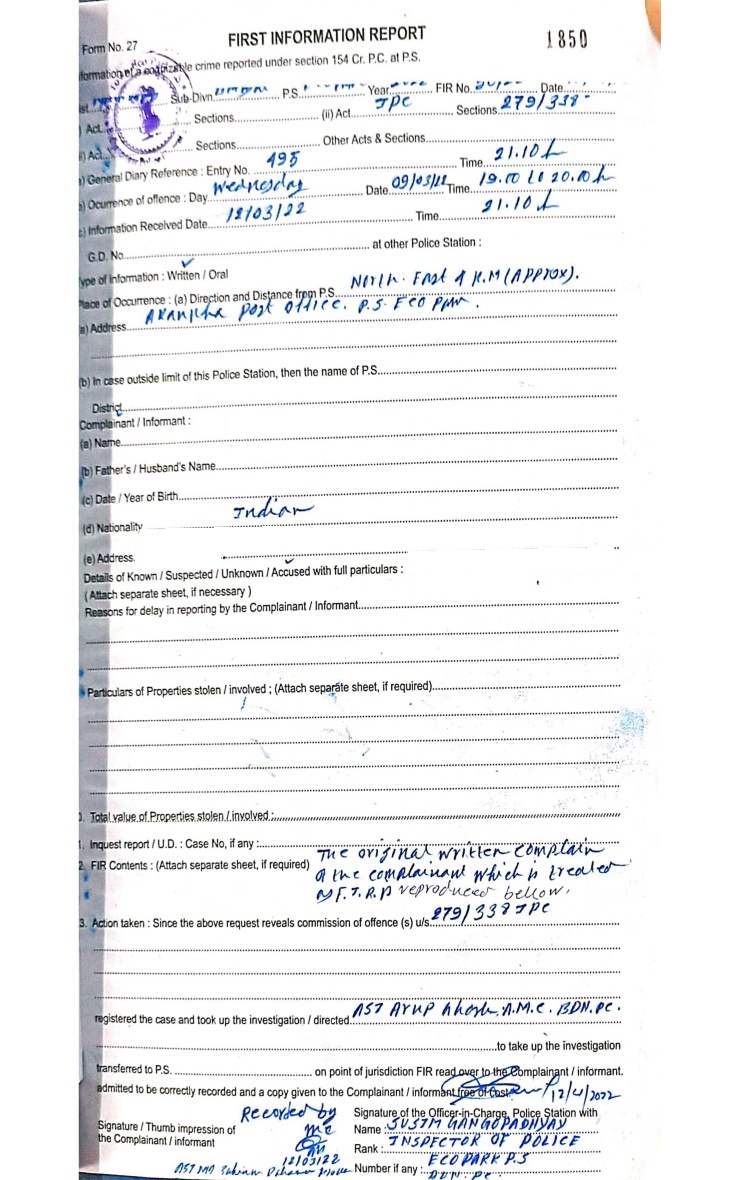 FIRST INFORMATION REPORT
1850
Form No. 27
formation of a cognizable crime reported under section 154 Cr. P.C. at P.S.
Sub-Divn. P.S. Year FIR No. Date
Act Sections (ii) Act IPC Sections 279/338
Act Sections Other Acts & Sections
) General Diary Reference : Entry No. 495 Time 21.10 h
) Ocurrence of offence : Day Wednesday Date 09/03/22 Time 19.00 to 20.00 h
) Information Received Date 12/03/22 Time 21.10 h
G.D. No. at other Police Station :
ype of Information : Written / Oral
lace of Occurrence : (a) Direction and Distance from P.S. North. East 4 K.M (APPROX).
a) Address Akankha post office. P.S-ECO Park.
(b) In case outside limit of this Police Station, then the name of P.S.
District
Complainant / Informant :
(a) Name
(b) Father's / Husband's Name
(c) Date / Year of Birth
(d) Nationality Indian
(e) Address.
Details of Known / Suspected / Unknown / Accused with full particulars :
(Attach separate sheet, if necessary )
Reasons for delay in reporting by the Complainant / Informant
Particulars of Properties stolen / involved ; (Attach separate sheet, if required)
). Total value of Properties stolen / involved :
1. Inquest report / U.D. : Case No, if any :
2. FIR Contents : (Attach separate sheet, if required) The original written complain
of the complainant which is treated
F.I.R is reproduced bellow.
3. Action taken : Since the above request reveals commission of offence (s) u/s. 279/338 IPC
registered the case and took up the investigation / directed ASI Arup Ghosh. A.M.C. BDN.PC.
to take up the investigation
transferred to P.S. on point of jurisdiction FIR read over to the Complainant / informant.
admitted to be correctly recorded and a copy given to the Complainant / informant free of Cost. 12/4/2022
Recorded by
me
12/03/22
ASI MD
Signature / Thumb impression of
the Complainant / informant
Signature of the Officer-in-Charge, Police Station with
Name : SUSIM GANGOPADHYAY
Rank : INSPECTOR OF POLICE
Number if any : ECOPARK P.S
BDN. PC